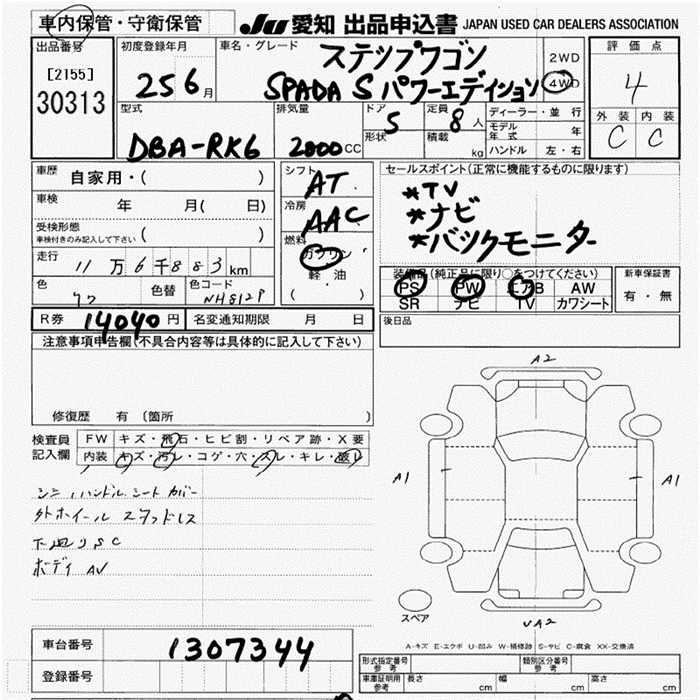 車内保管・守衛保管
JU 愛知 出品申込書 JAPAN USED CAR DEALERS ASSOCIATION
出品番号
[2155]
30313
初度登録年月
25 6月
車名・グレード
ステップワゴン
SPADA S パワーエディション
2WD
4WD
評価点
4
外装 内装
C C
型式
DBA-RK6
排気量
2000CC
ドア
5
形状
定員
8人
積載
kg
ディーラー・並行
モデル年式 年
ハンドル 左・右
車歴
自家用・( )
車検
年 月( 日)
受検形態
車検付きのみ記入して下さい ( )
走行
11万6千883km
色
色替
色コード
NH812P
シフト
AT
冷房
AAC
燃料
ガソリン
軽・油
( ・ )
セールスポイント(正常に機能するものに限ります)
*TV
*ナビ
*バックモニター
装備品(純正品に限り○をつけてください)
PS PW エアB AW
SR ナビ TV カワシート
新車保証書
有・無
R券 14040円
名変通知期限 月 日
後日品
注意事項申告欄(不具合内容等は具体的に記入して下さい)
修復歴 有 〔箇所 〕
検査員記入欄
FW キズ・飛石・ヒビ割・リペア跡・X要
内装 キズ・汚レ・コゲ・穴・スレ・キレ・破レ
シミ、ハンドル、シートカバー
外ホイール スタッドレス
下廻りSC
ボディ AV
A2
A1
A1
UA2
スペア
A-キズ E-エクボ U-凹み W-補修跡 S-サビ C-腐食 XX-交換済
車台番号
1307344
登録番号
形式指定番号
参考
類別区分番号
参考
車庫証明用
参考
長さ cm 幅 cm 高さ cm